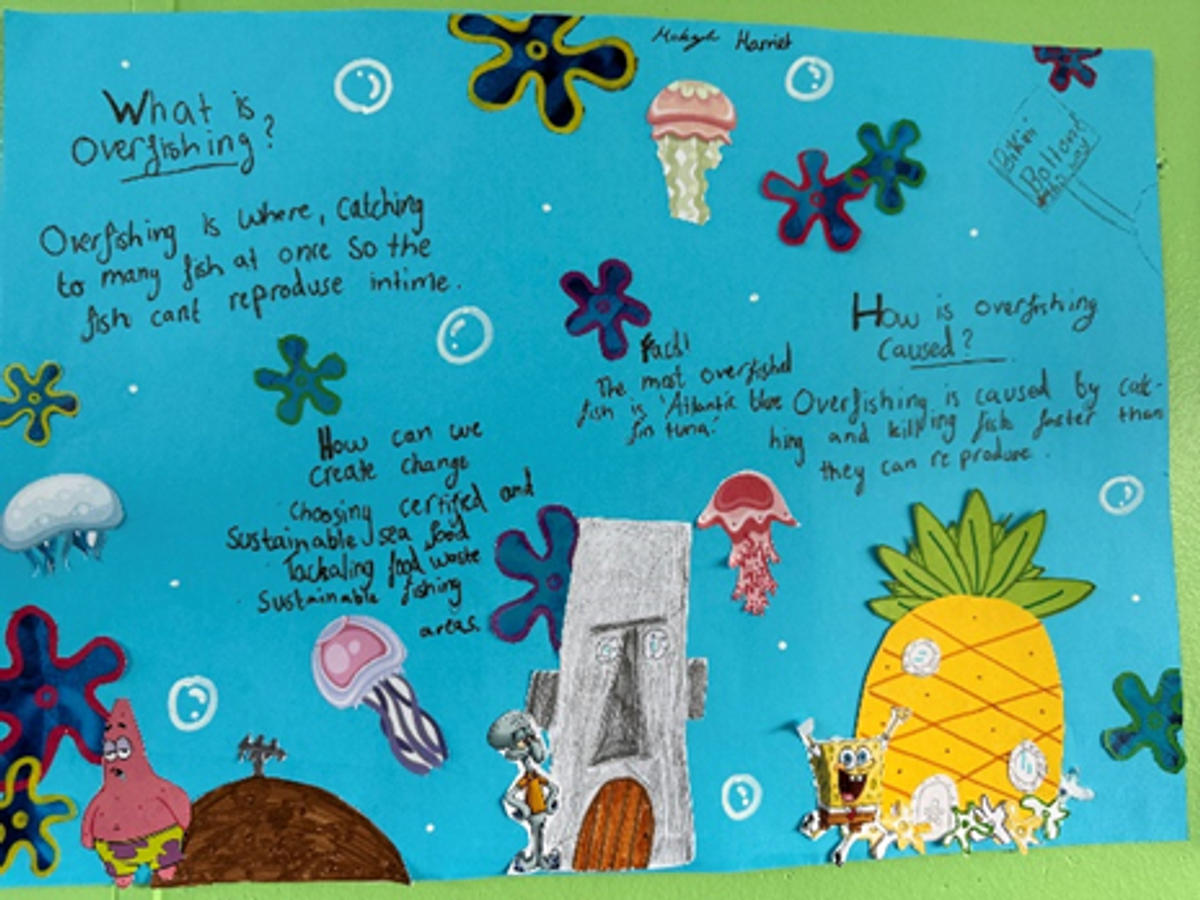 Harriet
What is
Overfishing?
Overfishing is where, catching
to many fish at once so the
fish cant reproduse intime.
How can we
create change
Choosing certifed and
Sustainable sea food
Tackaling food waste
Sustainable fishing
areas.
Fact!
The most overfished
fish is 'Atlantic blue
fin tuna.'
How is overfishing
Caused?
Overfishing is caused by catc-
hing and killing fish faster than
they can reproduse.
Bikini
Bottom
this way